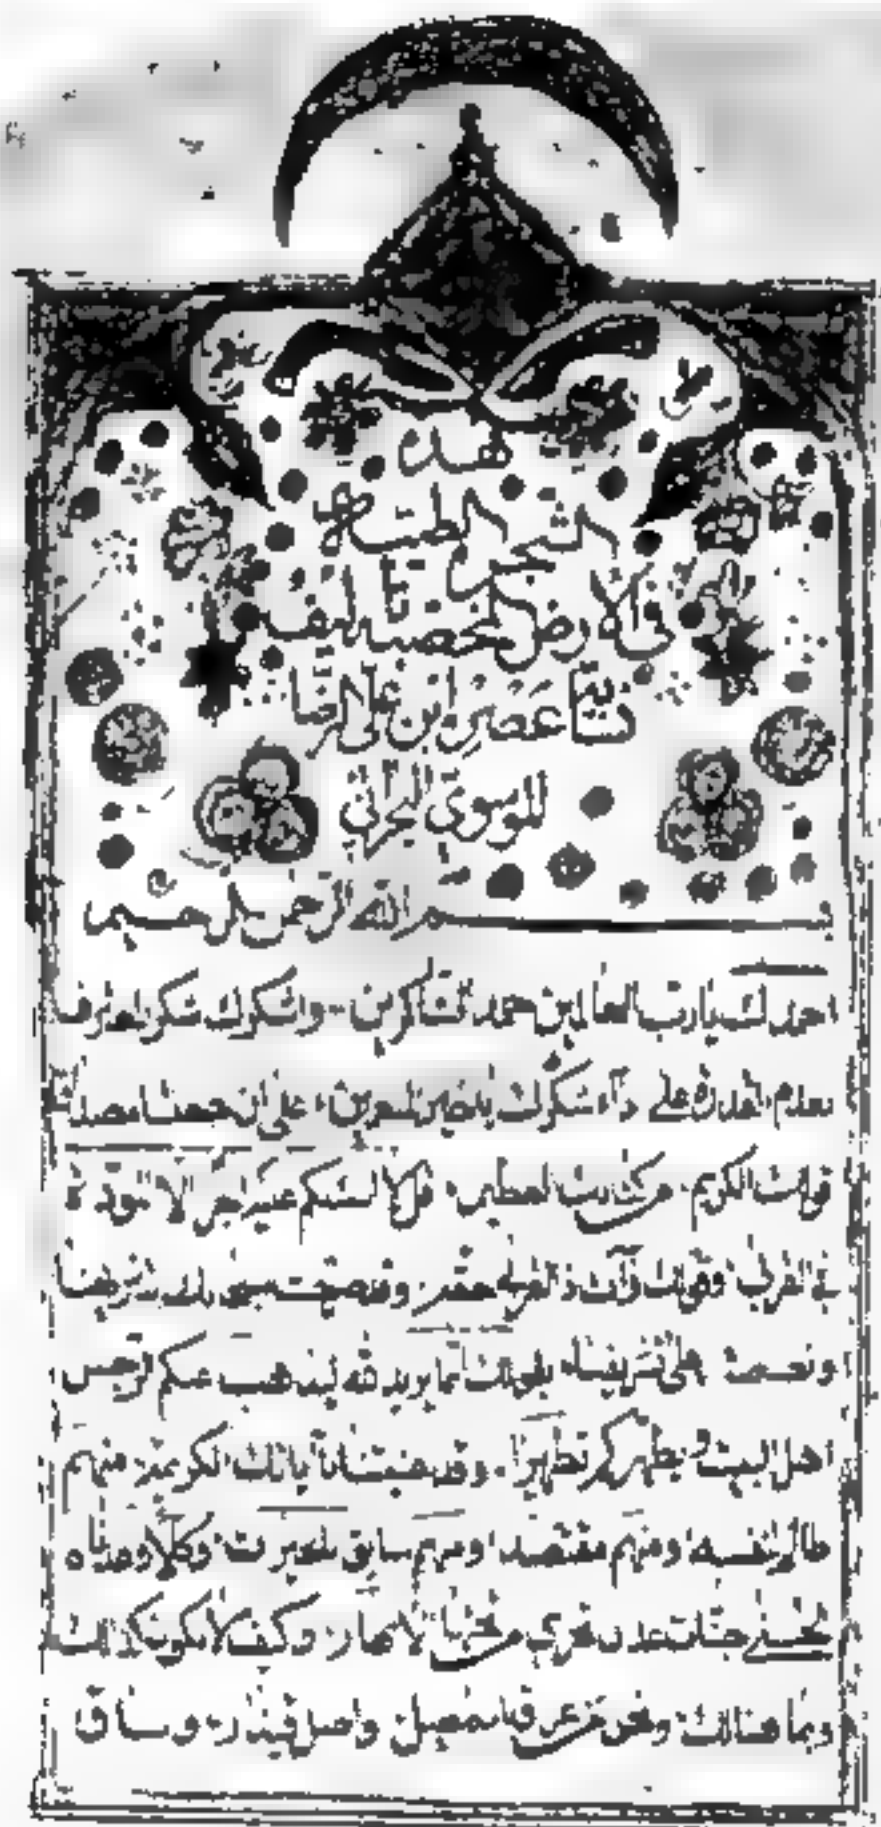 هذه
الشجرة الطيبة
في الأرض المخصبة تأليف
نسابة عصره ابن علي الرضا
الموسوي البحراني
بسم الله الرحمن الرحيم
احمدك يا رب العالمين حمد الشاكرين، واشكرك شكر المعترف
بعدم القدرة على داء شكرك على ان جعلتنا مصداق
قولك الكريم، من كتابك العظيم، قل لا اسئلكم عليه اجرا الا المودة
في القربى، وقولك وآت ذا القربى حقه، وقد
اهل تشريفنا، بقولك انما يريد الله ليذهب عنكم الرجس
اهل البيت ويطهركم تطهيرا، وقد آياتك الكريمة، منهم
ظالم لنفسه، ومنهم مقتصد، ومنهم سابق بالخيرات، وكلا وعدناه
الحسنى جنات عدن تجري من تحتها الانهار، وكيف لا نكون كذلك
وبما هنالك، ونحن من عرق اسمعيل، واصل قيذار، وساق